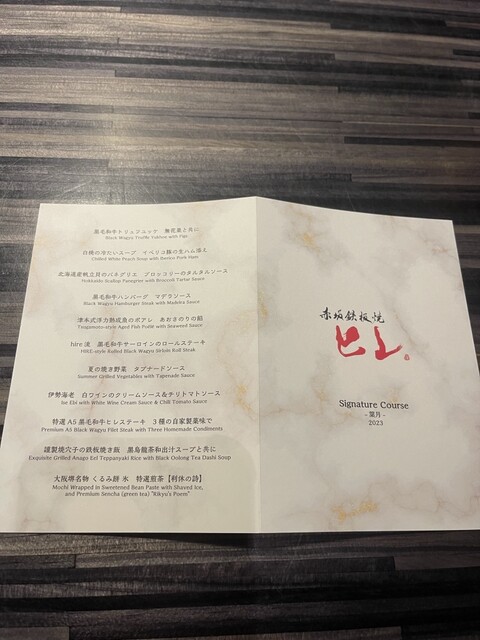 黒毛和牛トリュフユッケ 無花果と共に
Black Wagyu Truffle Yukhoe with Figs
白桃の冷たいスープ イベリコ豚の生ハム添え
Chilled White Peach Soup with Iberico Pork Ham
北海道産帆立貝のパネグリエ ブロッコリーのタルタルソース
Hokkaido Scallop Panegrire with Broccoli Tartar Sauce
黒毛和牛ハンバーグ マデラソース
Black Wagyu Hamburger Steak with Madeira Sauce
津本式浮力熟成魚のポアレ あおさのりの餡
Tsugumoto-style Aged Fish Poêlé with Seaweed Sauce
hire 流 黒毛和牛サーロインのロールステーキ
HIRE-style Rolled Black Wagyu Sirloin Roll Steak
夏の焼き野菜 タプナードソース
Summer Grilled Vegetables with Tapenade Sauce
伊勢海老 白ワインのクリームソース&チリトマトソース
Ise Ebi with White Wine Cream Sauce & Chili Tomato Sauce
特選 A5 黒毛和牛ヒレステーキ 3種の自家製薬味で
Premium A5 Black Wagyu Filet Steak with Three Homemade Condiments
謹製焼穴子の鉄板焼き飯 黒烏龍茶和出汁スープと共に
Exquisite Grilled Anago Eel Teppanyaki Rice with Black Oolong Tea Dashi Soup
大阪堺名物 くるみ餅 氷 特選煎茶【利休の詩】
Mochi Wrapped in Sweetened Bean Paste with Shaved Ice,
and Premium Sencha (green tea) "Rikyu's Poem"
赤坂鉄板焼
ヒレ
Signature Course
- 葉月 -
2023